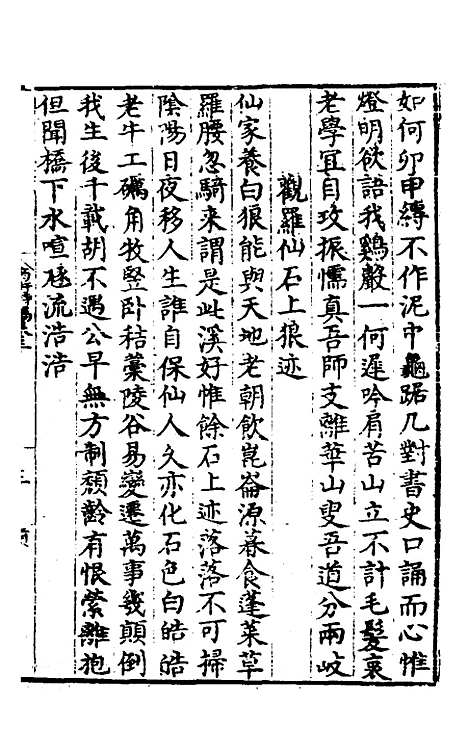 如何卯申縛不作泥中龜踞几對書史口誦而心惟
燈明欲語我鷄聲一何遲吟肩苦山立不計毛髮衰
老學宜自攻振懦真吾師支離華山叟吾道分兩岐
觀羅仙石上狼迹
仙家養白狼能與天地老朝飲崑崙源暮食蓬萊草
羅腰忽騎来謂是此溪好惟餘石上迹落落不可掃
陰陽日夜移人生誰自保仙人久亦化石色白皓皓
老牛工礪角牧豎卧秸藁陵谷易變遷萬事幾顛倒
我生後千載胡不遇公早無方制頹齡有恨縈離抱
但聞橋下水喧豗流浩浩